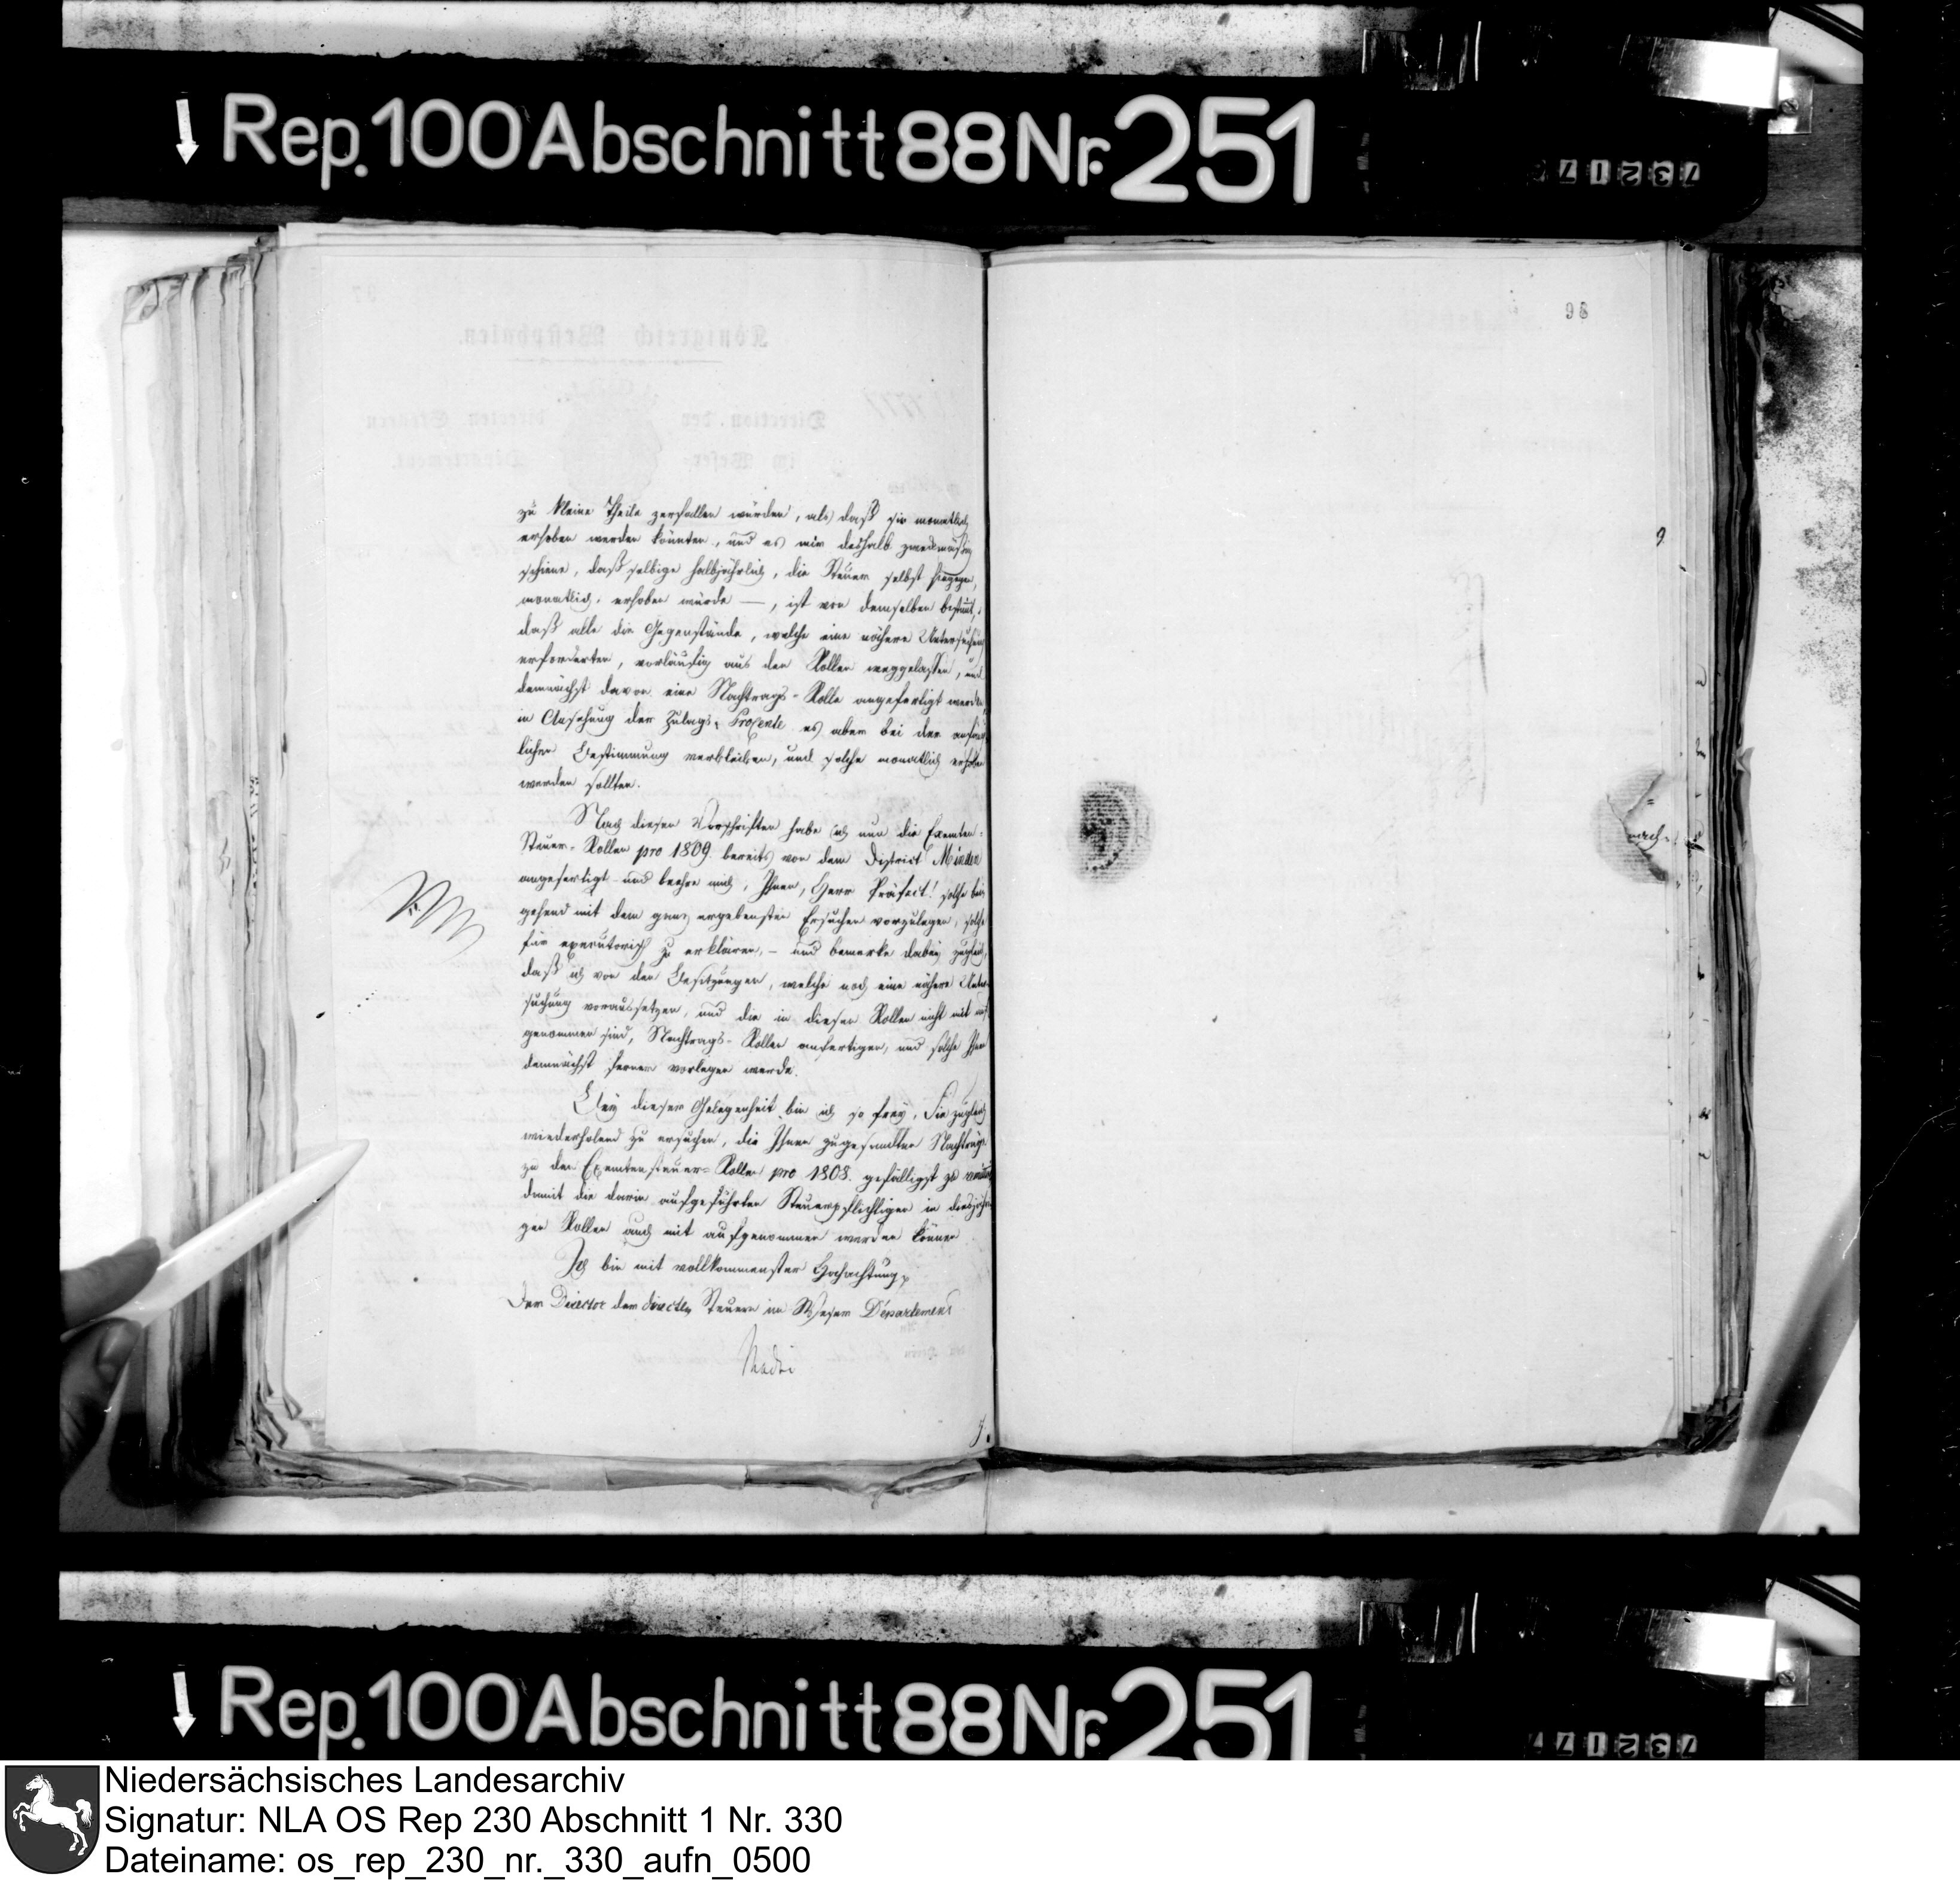 Rep. 100 Abschnitt 88 Nr. 251
73217
98
zu kleine Theile zerfallen würden, als daß sie monatlich
erhoben werden könnten, und es mir deshalb zweckmäßig
schiene, daß selbige halbjährlich, die Steuer selbst hingegen,
monatlich erhoben würde —, ist von demselben bestimt,
daß alle die Gegenstände, welche eine nähere Untersuchung
erforderten, vorläufig aus den Rollen weggelassen, und
demnächst davon eine Nachtrags-Rolle angefertigt werden,
in Ansehung der Zulags-Procente es aber bei der anfäng
lichen Bestimmung verbleiben, und solche monatlich erhoben
werden sollten.
Nach diesen Vorschriften habe ich nun die Exemten-
Steuer-Rollen pro 1809. bereits von dem District Minden
angefertigt und beehre mich, Ihnen, Herr Präfect! solche bei
gehend mit dem ganz ergebensten Ersuchen vorzulegen, solche
für executorisch zu erklären, – und bemerke dabey zugleich,
daß ich von den Besitzungen, welche noch eine nähere Unter-
suchung voraussetzen, und die in diesen Rollen nicht mit auf
genommen sind, Nachtrags-Rollen anfertigen, und solche Ihnen
demnächst ferner vorlegen werde.
Bey dieser Gelegenheit bin ich so frey, Sie zugleich
wiederholend zu ersuchen, die Ihnen zugesandten Nachträge
zu den Exemtensteuer-Rollen pro 1808. gefälligst zu
damit die darin aufgeführten Steuerpflichtigen in diesjähri
gen Rollen auch mit aufgenommen werden können
Ich bin mit vollkommenster Hochachtung
Der Director der directen Steuern im Weser Département
nach-
Rep. 100 Abschnitt 88 Nr. 251
73217
Niedersächsisches Landesarchiv
Signatur: NLA OS Rep 230 Abschnitt 1 Nr. 330
Dateiname: os_rep_230_nr._330_aufn_0500